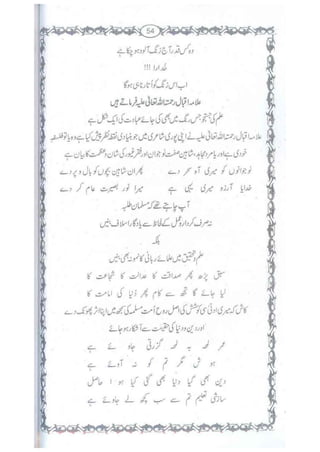 54
وہ کس قدر آج زنگ آلود ہو چکا ہے
خدارا !!!
اب اس زنگ کو اُتارنا ہی ہوگا
علامہ اقبال رحمۃ اللہ تعالیٰ علیہ فرماتے ہیں
علم کی جستجو جس رنگ میں بھی کی جائے عبادت کی ایک شکل ہے
علامہ اقبال رحمۃ اللہ تعالیٰ علیہ نے اپنی پوری شاعری میں جو بنیادی نقطہ نظر پیش کیا ہے وہ یا تو فلسفہ
خودی ہے اور یا مردِ مجاہد، شاہین صفت نوجوان اور فقرِ غیور کی شان و عظمت کا بیان ہے
نوجوانوں کو میری آہ سحر دے پھر ان شاہین بچوں کو بال و پر دے
خدایا آرزو میری یہی ہے میرا نور بصیرت عام کر دے
آپ چاہتے تھے کہ مسلمان طلبہ
نہ صرف کردار و عمل کے لحاظ سے یادگارِ اسلاف بنیں
بلکہ
علم و تحقیق میں علمائے ربانی کا نمونہ بھی بنیں
سبق پڑھ پھر صداقت کا عدالت کا شجاعت کا
لیا جائے گا تجھ سے کام پھر دنیا کی امامت کا
کاش کہ میری ادنیٰ سی کوشش کی اصل روح اُمت مسلمہ کی سمجھ میں اپنا اثر پھونک دے
اور دین و دنیا کی حقیقت سے آشکار ہو جائے
عمر لمحہ بہ لمحہ گزرتی جاوے ہے
ہوش مگر تم کو نہ آوئے ہے
دین بھی گیا دنیا بھی گئی کیا ہوا حاصل
سازشی تعلیم تم سے سب کچھ لے جاوئے ہے